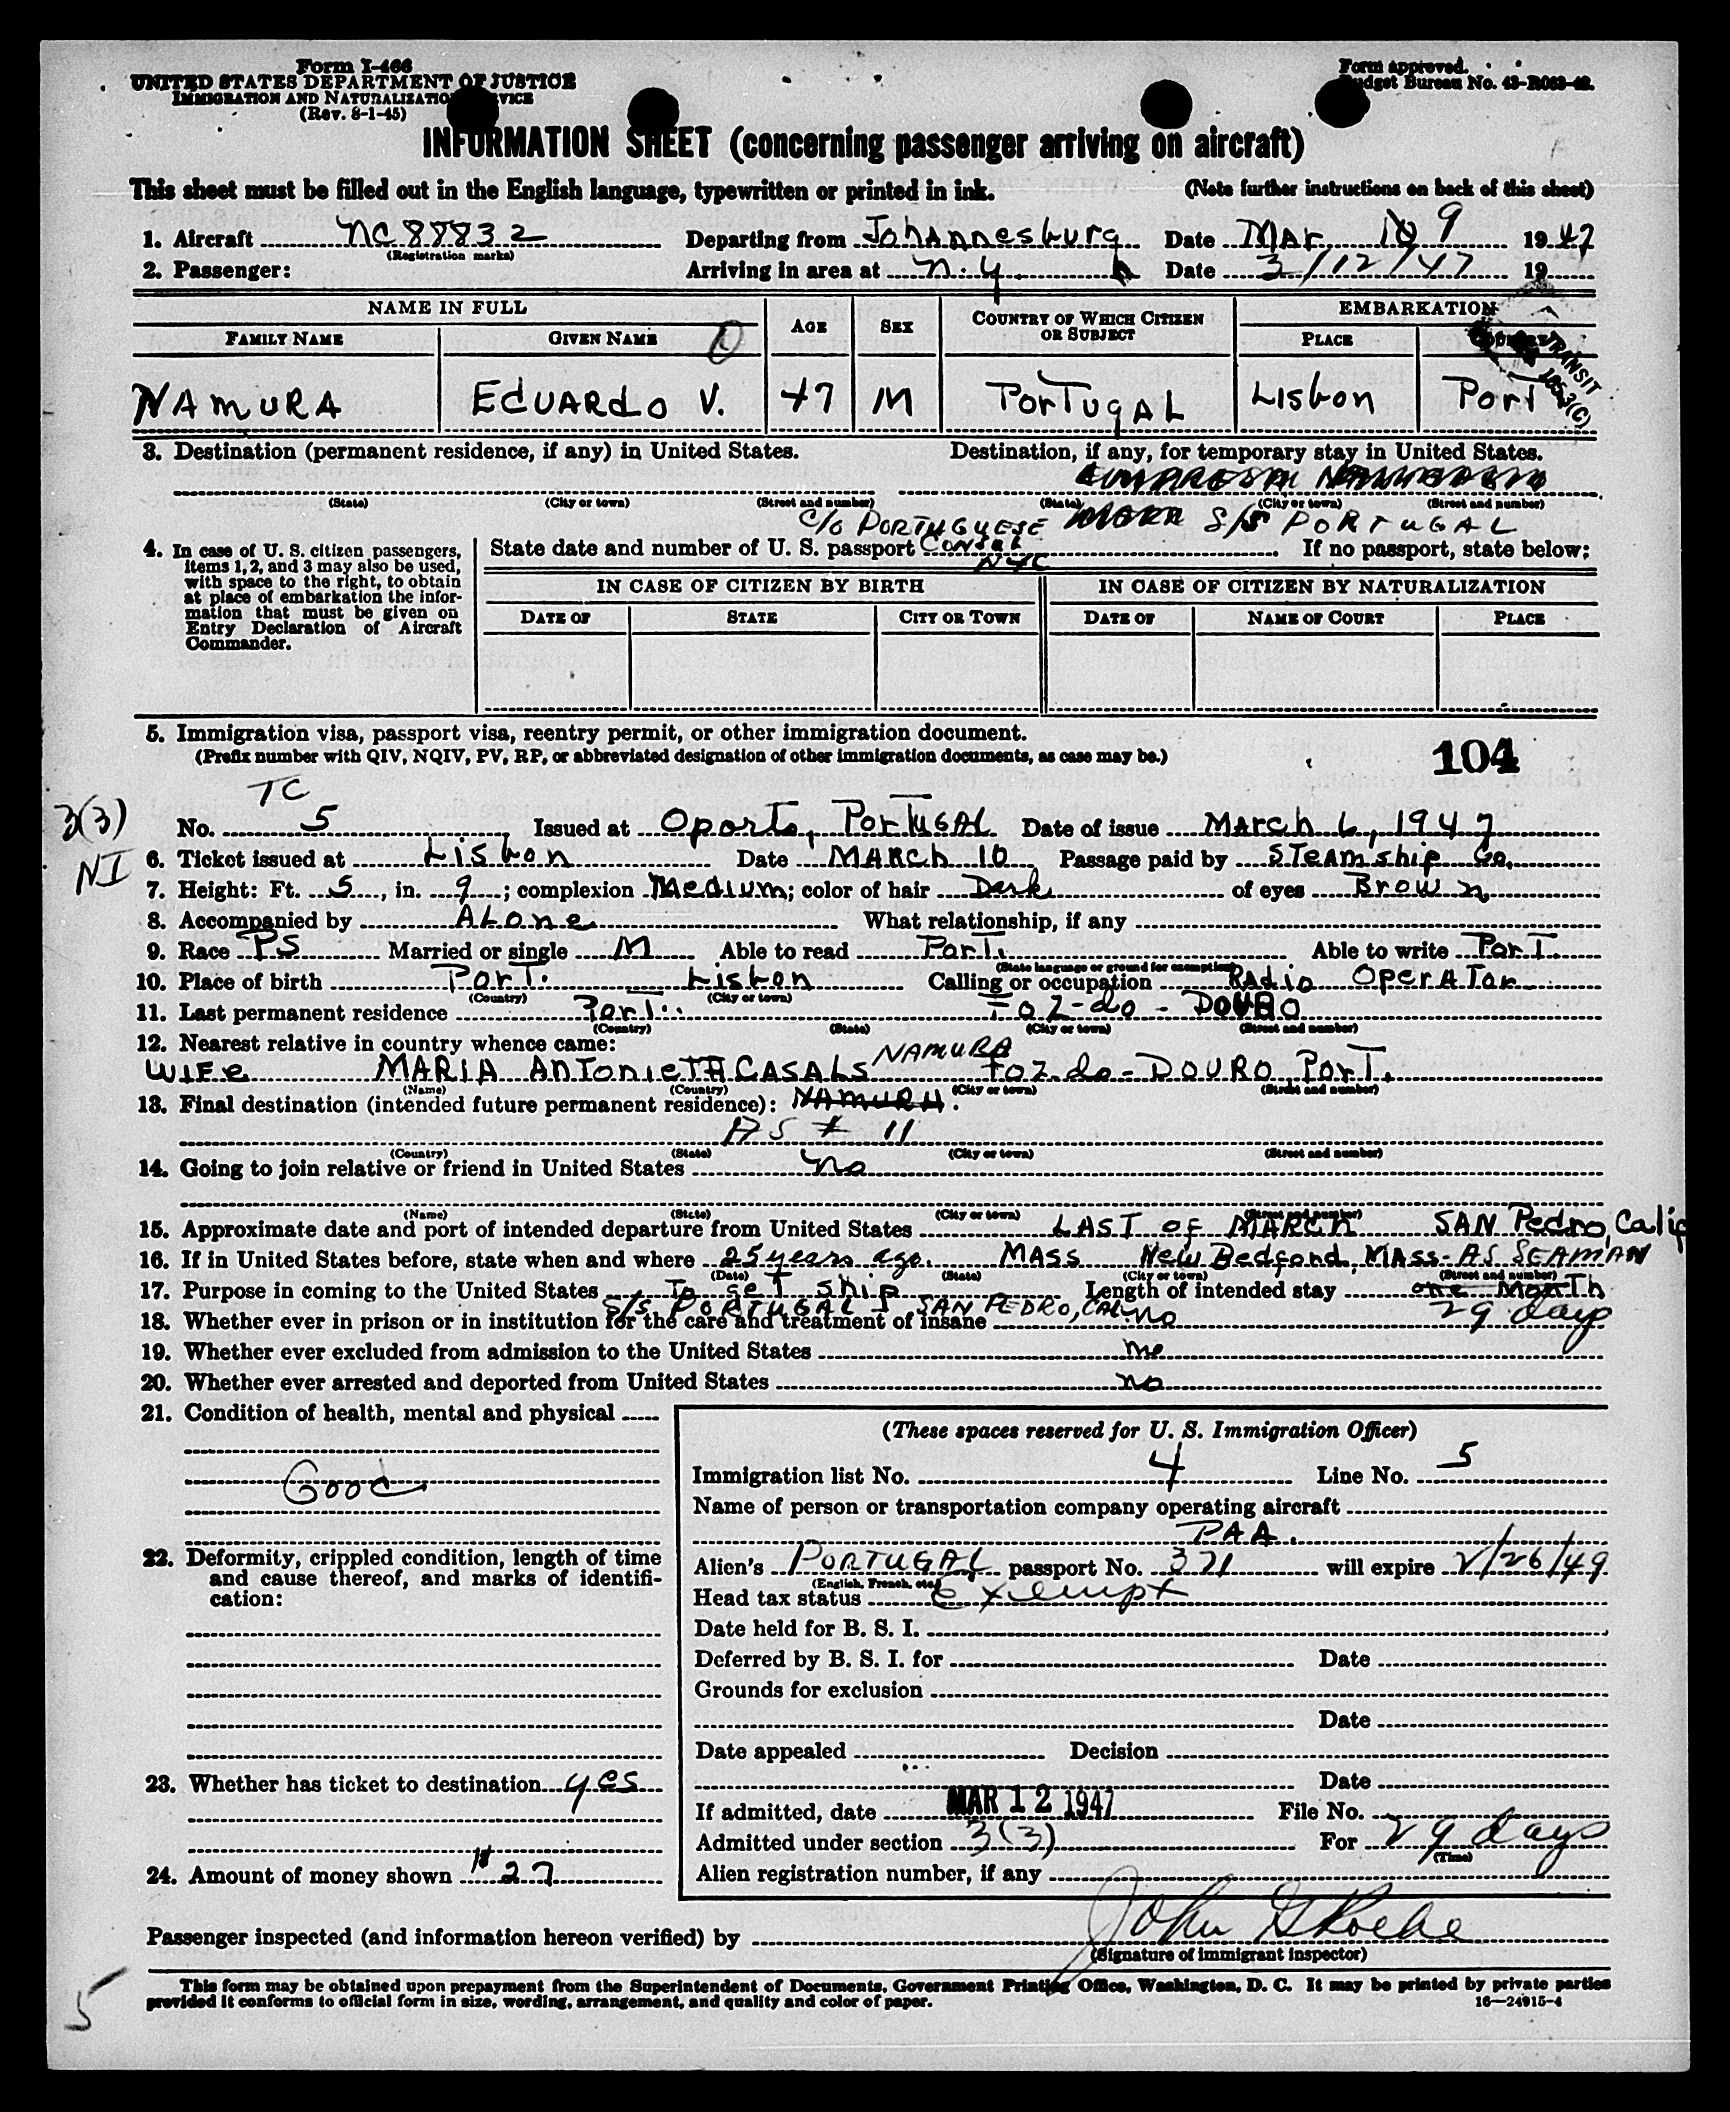 Form I-466
UNITED STATES DEPARTMENT OF JUSTICE
IMMIGRATION AND NATURALIZATION SERVICE
(Rev. 8-1-45)
Form approved.
Budget Bureau No. 43-R063-42.
INFORMATION SHEET (concerning passenger arriving on aircraft)
This sheet must be filled out in the English language, typewritten or printed in ink. (Note further instructions on back of this sheet)
1. Aircraft NC 88832 Departing from Johannesburg Date Mar 9 1947
(Registration marks)
2. Passenger: Arriving in area at N.Y. Date 3/12/47 19
NAME IN FULL AGE SEX COUNTRY OF WHICH CITIZEN OR SUBJECT EMBARKATION
FAMILY NAME GIVEN NAME PLACE COUNTRY
TRANSIT
NAMURA EDUARDO V. 47 M PORTUGAL Lisbon Port
3. Destination (permanent residence, if any) in United States. Destination, if any, for temporary stay in United States.
(State) (City or town) (Street and number) (State) (City or town) (Street and number)
C/O PORTUGUESE S/S PORTUGAL
4. In case of U. S. citizen passengers, items 1, 2, and 3 may also be used, with space to the right, to obtain at place of embarkation the information that must be given on Entry Declaration of Aircraft Commander.
State date and number of U. S. passport CONSUL If no passport, state below:
NYC
IN CASE OF CITIZEN BY BIRTH IN CASE OF CITIZEN BY NATURALIZATION
DATE OF STATE CITY OR TOWN DATE OF NAME OF COURT PLACE
5. Immigration visa, passport visa, reentry permit, or other immigration document.
(Prefix number with QIV, NQIV, PV, RP, or abbreviated designation of other immigration documents, as case may be.)
104
TC
3(3)
No. 5 Issued at Oporto, PORTUGAL Date of issue MARCH 6, 1947
NI
6. Ticket issued at Lisbon Date MARCH 10 Passage paid by STEAMSHIP Co.
7. Height: Ft. 5, in. 9; complexion Medium; color of hair Dark of eyes Brown
8. Accompanied by ALone What relationship, if any
9. Race PS Married or single M Able to read Port. Able to write Port.
(State language or ground for exemption)
10. Place of birth Port. Lisbon Calling or occupation RADio OPERATOR
(Country) (City or town)
11. Last permanent residence Port. Foz-do-DOURO
(Country) (State) (City or town) (Street and number)
12. Nearest relative in country whence came:
NAMURA
WIFE MARIA ANTONIETA CASALS Foz-do-DOURO PORT.
(Name) (Country) (City or town) (Street and number)
13. Final destination (intended future permanent residence): NAMURA.
AS # 11
(Country) (State) (City or town) (Street and number)
14. Going to join relative or friend in United States no
(Name) (State) (City or town) (Street and number)
15. Approximate date and port of intended departure from United States LAST of MARCH SAN Pedro, Calif
16. If in United States before, state when and where 25 years ago. MASS New Bedford, MASS - AS SEAMAN
(Date) (State) (City or town) (Street and number)
17. Purpose in coming to the United States To get ship Length of intended stay one MONTH
S/S PORTUGAL SAN PEDRO, CAL. 29 days
18. Whether ever in prison or in institution for the care and treatment of insane no
19. Whether ever excluded from admission to the United States no
20. Whether ever arrested and deported from United States no
21. Condition of health, mental and physical
Good
22. Deformity, crippled condition, length of time and cause thereof, and marks of identification:
23. Whether has ticket to destination yes
24. Amount of money shown $27
(These spaces reserved for U. S. Immigration Officer)
Immigration list No. 4 Line No. 5
Name of person or transportation company operating aircraft
PAA.
Alien's PORTUGAL passport No. 371 will expire 2/26/49
(English, French, etc.)
Head tax status exempt
Date held for B. S. I.
Deferred by B. S. I. for Date
Grounds for exclusion
Date
Date appealed Decision
Date
If admitted, date MAR 12 1947 File No.
Admitted under section 3(3) For 29 days
(Time)
Alien registration number, if any
Passenger inspected (and information hereon verified) by John
(Signature of immigrant inspector)
5
This form may be obtained upon prepayment from the Superintendent of Documents, Government Printing Office, Washington, D. C. It may be printed by private parties
provided it conforms to official form in size, wording, arrangement, and quality and color of paper. 16—24915-4